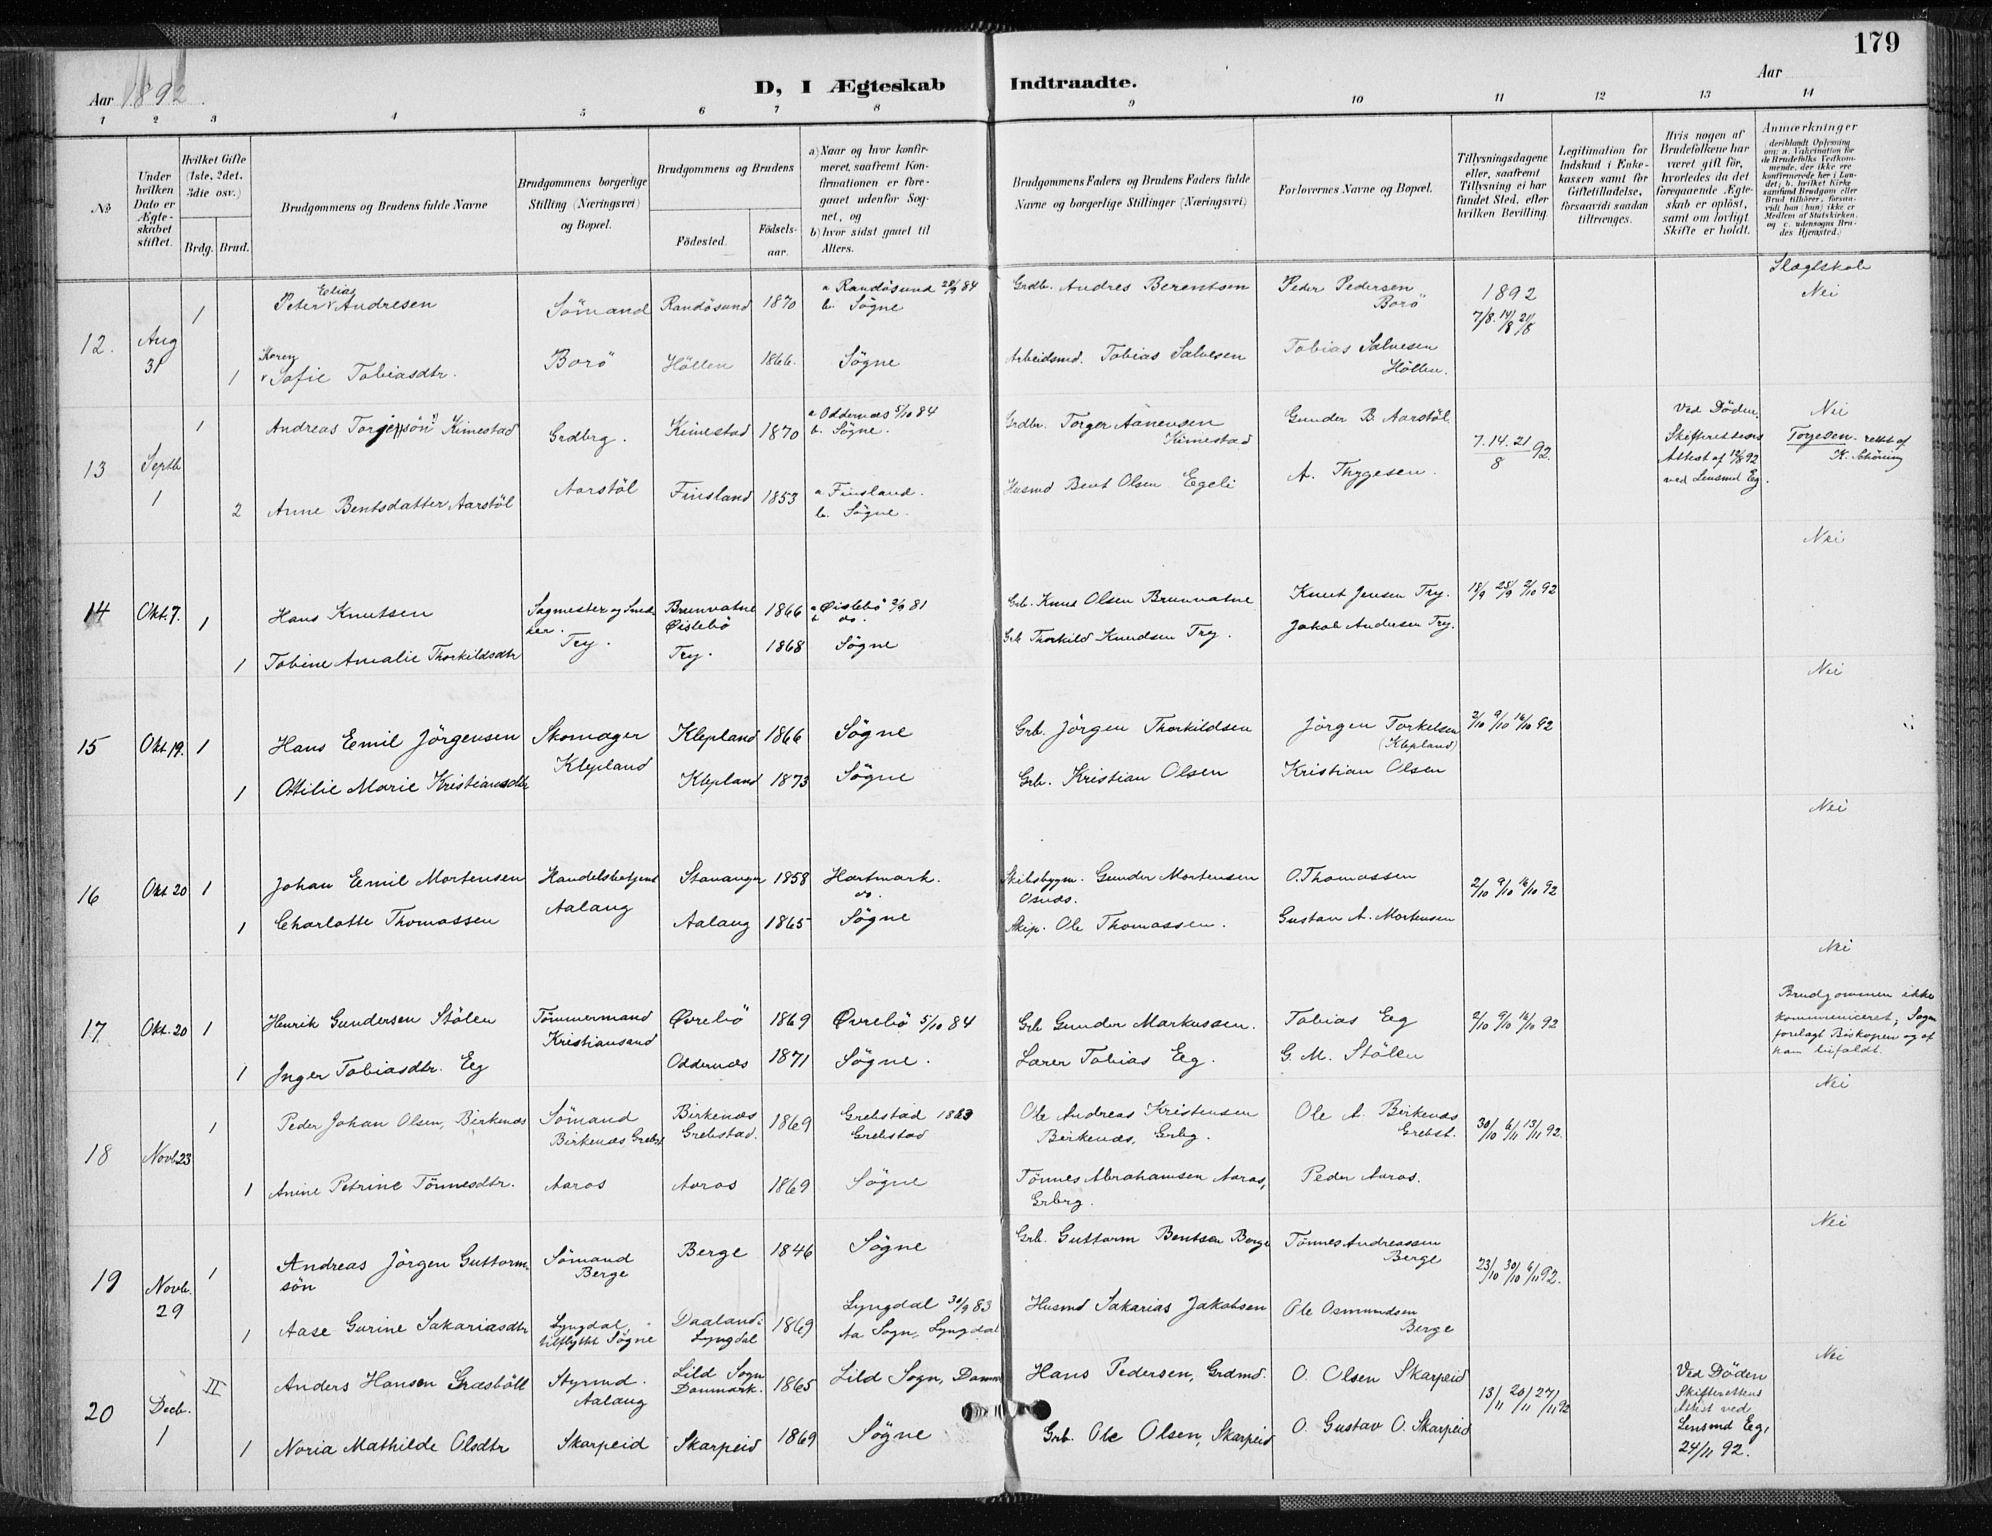 179
Aar 1892.
D, I Ægteskab Indtraadte.
Aar
1 2 3 4 5 6 7 8 9 10 11 12 13 14
No
Under hvilken Dato er Ægteskabet stiftet.
Hvilket Gifte (1ste, 2det, 3die osv.)
Brdg. Brud.
Brudgommens og Brudens fulde Navne
Brudgommens borgerlige Stilling (Næringsvei) og Bopæl.
Brudgommens og Brudens
Födested. Födsels-aar.
a) Naar og hvor konfirmeret, saafremt Konfirmationen er foregaaet udenfor Sognet, og
b) hvor sidst gaaet til Alters.
Brudgommens Faders og Brudens Faders fulde Navne og borgerlige Stillinger (Næringsvei)
Forlovernes Navne og Bopæl.
Tillysningsdagene eller, saafremt Tillysning ei har fundet Sted, efter hvilken Bevilling.
Legitimation for Indskud i Enkekassen samt for Giftetilladelse, forsaavidt saadan tiltrænges.
Hvis nogen af Brudefolkene har været gift för, hvorledes da det foregaaende Ægteskab er oplöst, samt om lovligt Skifte er holdt.
Anmærkninger (deriblandt Oplysning om: a. Vakcination for de Brudefolks Vedkommende, der ikke ere konfirmerede her i Landet; b. hvilket Kirkesamfund Brudgom eller Brud tilhörer, forsaavidt han (hun) ikke er Medlem af Statskirken, og c. udensogns Brudes Hjemsted.)
Slægtskab
12. Aug 31 1 Peter Elias Andresen Sömand Randösund 1870 a Randösund 28/9 84 b. Sögne Grdbr. Andres Berentsen Peder Pedersen Borö 1892 7/8. 14/8 21/8 Nei
1 Karen Sofie Tobiasdtr. Borö Höllen 1866. Sögne Arbeidsmd. Tobias Salvesen Tobias Salvesen Höllen.
13 Septb 1 1 Andreas Torjessön Kimestad Grdbrg. Kimestad 1870 a Oddernæs 5/10 84 b. Sögne. Grdbr. Torger Aanensen Kimestad Gunder B. Aarstöl 7. 14. 21/8 92. Ved Döden, Skifterettens Attest af 12/8 92 ved Lensmd Eg. Nei Torjesen. rettet af K. Schöning
2 Anne Bentsdatter Aarstöl Aarstöl Finsland 1853 a Finsland. b. Sögne. Husmd Bent Olsen Egeli A. Thygesen.
Nei
14 Okt. 7. 1 Hans Knutsen Sagmester og Snedker. Brunvatne Øislebö 1866 a Øislebö 2/9 81 b do. Grb. Knud Olsen Brunvatne Knut Jensen Try. 18/9 25/9 2/10 92
1 Tobine Amalie Thorkildsdtr Try. Try. 1868 Sögne Grb Thorkild Knudsen Try. Jakob Andresen Try.
Nei
15 Okt 19. 1 Hans Emil Jörgensen Skomager Klepland 1866 Sögne Grb. Jörgen Thorkildsen Jörgen Torkelsen (Klepland) 2/10 9/10 16/10 92
1 Ottilie Marie Kristiansdtr Klepland Klepland 1873 Sögne Grb. Kristian Olsen Kristian Olsen
Nei
16 Okt 20 1 Johan Emil Mortensen Handelsbetjent Stavanger 1858 Hartmark. do. Skibsbygm. Gunder Mortensen Osnæs. O. Thomassen 2/10 9/10 16/10 92
1 Charlotte Thomassen Aalaug Aalaug 1865 Sögne Skip. Ole Thomassen. Gustav A. Mortensen
Nei
17 Okt. 20 1 Henrik Gundersen Stölen Tömmermand Kristiansand Øvrebö 1869 Øvrebö 5/10 84 Grb Gunder Markussen. Tobias Eg 2/10 9/10 16/10 92 Brudgommen ikke kommuniceret; Sagen forelagt Biskopen og af ham bifaldt.
1 Inger Tobiasdtr. Eg Oddernæs 1871 Sögne. Lærer Tobias Eg. G. M. Stölen
Nei
18 Novb 23 1 Peder Johan Olsen, Birkenæs Sömand Birkenæs Grebst Birkenæs Grebstad. 1869 Grebstad 1883 Grebstad Ole Andreas Kristensen Birkenæs, Grbrg. Ole A. Birkenæs Grebst. 30/10 6/11 13/11 92.
1 Anine Petrine Tönnesdtr. Aaros Aaros 1869 Sögne Tönnes Abrahamsen Aaros, Grbrg. Peder Aaros.
Nei
19 Novb. 29 1 Andreas Jörgen Guttormsön Sömand Berge Berge 1846 Sögne Grb. Guttorm Bentsen Berge Tönnes Andreassen Berge 23/10 30/10 6/11 92.
1 Aase Gurine Sakariasdtr Lyngdal tilflyttet Sögne Daaland i Lyngdal 1869 Lyngdal 30/9 83 Aa Sogn, Lyngdal Husmd Sakarias Jakobsen Ole Osmundsen Berge
Nei
20 Decb. 1 II Anders Hansen Græsböll Styrmd. Aalaug Lild Sogn Danmark. 1865 Lild Sogn, Danm Hans Pedersen, Grdmd. O. Olsen Skarpeid 13/11 20/11 27/11 92 Ved Döden Skifterettens Attest ved Lensmd Eg, 24/11 92.
1 Noria Mathilde Olsdtr Skarpeid Skarpeid 1869 Sögne Grb. Ole Olsen, Skarpeid O. Gustav O. Skarpeid